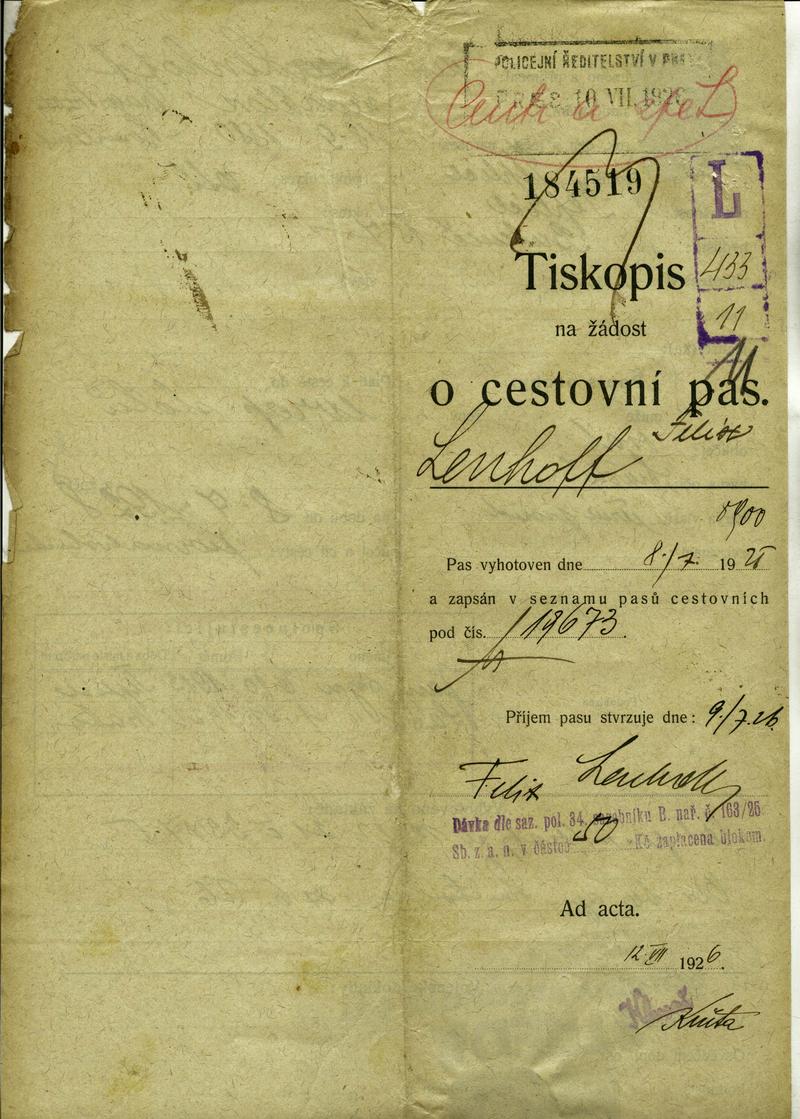 POLICEJNÍ ŘEDITELSTVÍ V
10 VII. 1926
184519
L
433
11
Tiskopis
na žádost
o cestovní pas.
Lenhoff Felix
Pas vyhotoven dne 8./7. 19 26
a zapsán v seznamu pasů cestovních
pod čís. 19673.
Příjem pasu stvrzuje dne: 9./7.26
Felix Lenhoff
Dávka dle saz. pol. 34. sazebníku B. nař. č. 163/26
Sb. z. a. n. v částce 50 Kč zaplacena blokem.
Ad acta.
12. VII 1926.